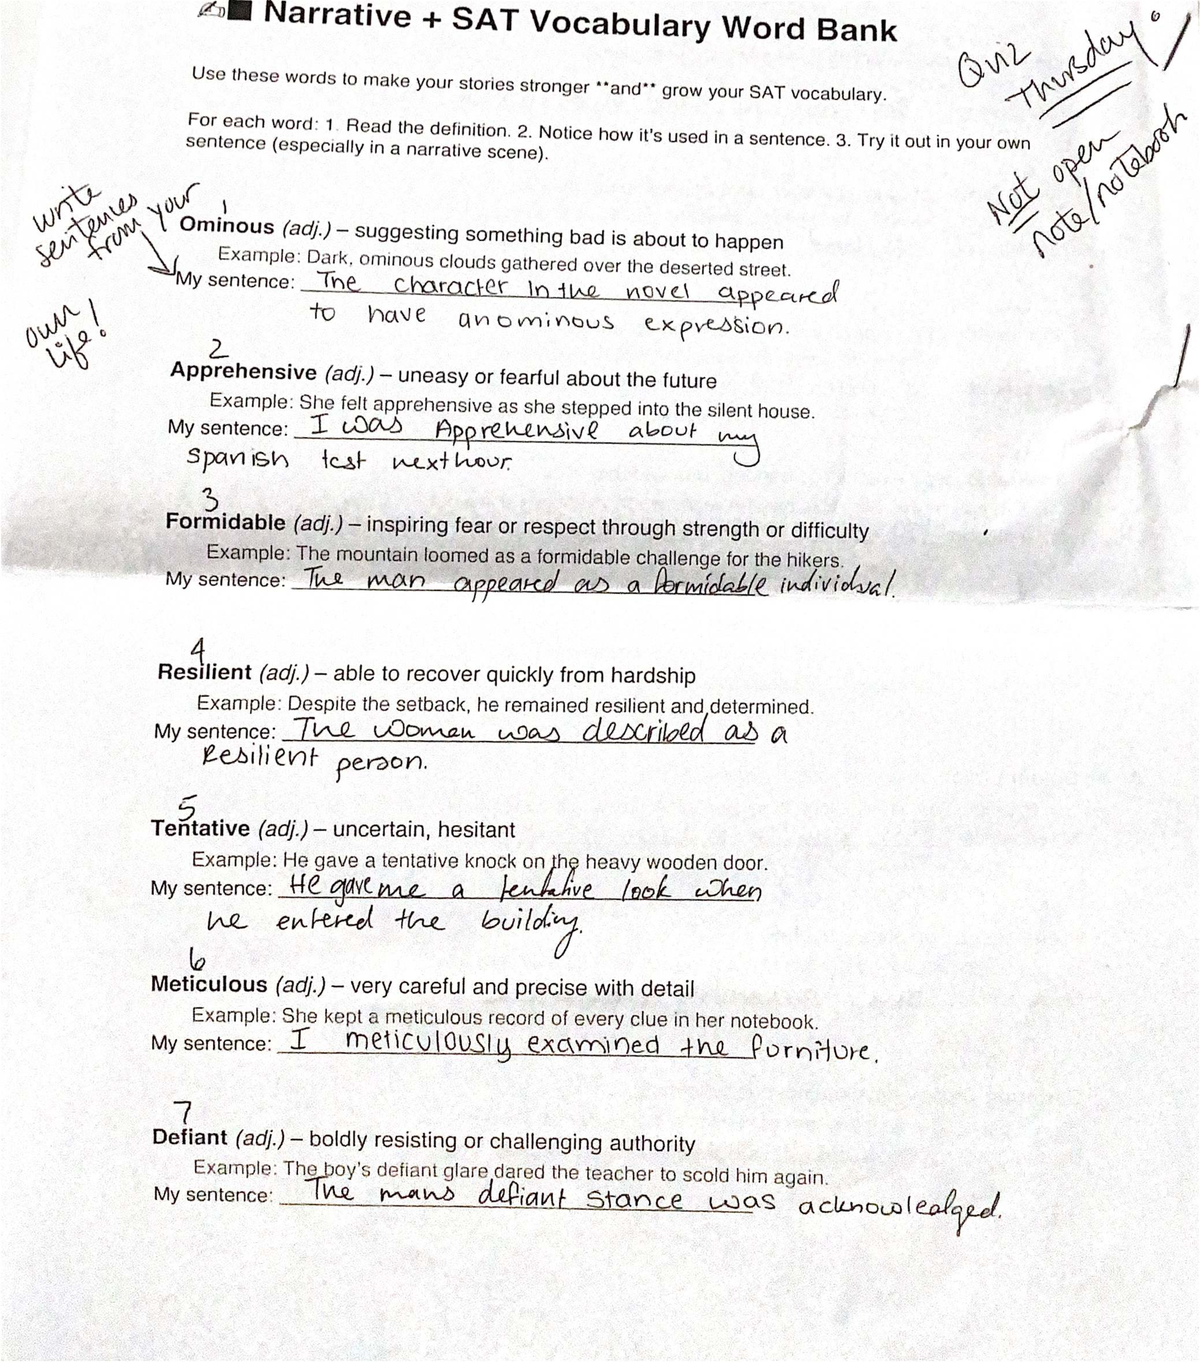 ✍■ Narrative + SAT Vocabulary Word Bank
Quiz
Thursday!
Not open
note/notebook
Use these words to make your stories stronger **and** grow your SAT vocabulary.
For each word: 1. Read the definition. 2. Notice how it's used in a sentence. 3. Try it out in your own
sentence (especially in a narrative scene).
write
sentences
from your
own
life!
1
Ominous (adj.) – suggesting something bad is about to happen
Example: Dark, ominous clouds gathered over the deserted street.
My sentence: The character in the novel appeared
to have an ominous expression.
2
Apprehensive (adj.) – uneasy or fearful about the future
Example: She felt apprehensive as she stepped into the silent house.
My sentence: I was Apprehensive about my
Spanish test next hour.
3
Formidable (adj.) – inspiring fear or respect through strength or difficulty
Example: The mountain loomed as a formidable challenge for the hikers.
My sentence: The man appeared as a formidable individual.
4
Resilient (adj.) – able to recover quickly from hardship
Example: Despite the setback, he remained resilient and determined.
My sentence: The women was described as a
Resilient person.
5
Tentative (adj.) – uncertain, hesitant
Example: He gave a tentative knock on the heavy wooden door.
My sentence: He gave me a tentative look when
he entered the building.
6
Meticulous (adj.) – very careful and precise with detail
Example: She kept a meticulous record of every clue in her notebook.
My sentence: I meticulously examined the furniture.
7
Defiant (adj.) – boldly resisting or challenging authority
Example: The boy's defiant glare dared the teacher to scold him again.
My sentence: The mans defiant stance was acknowledged.